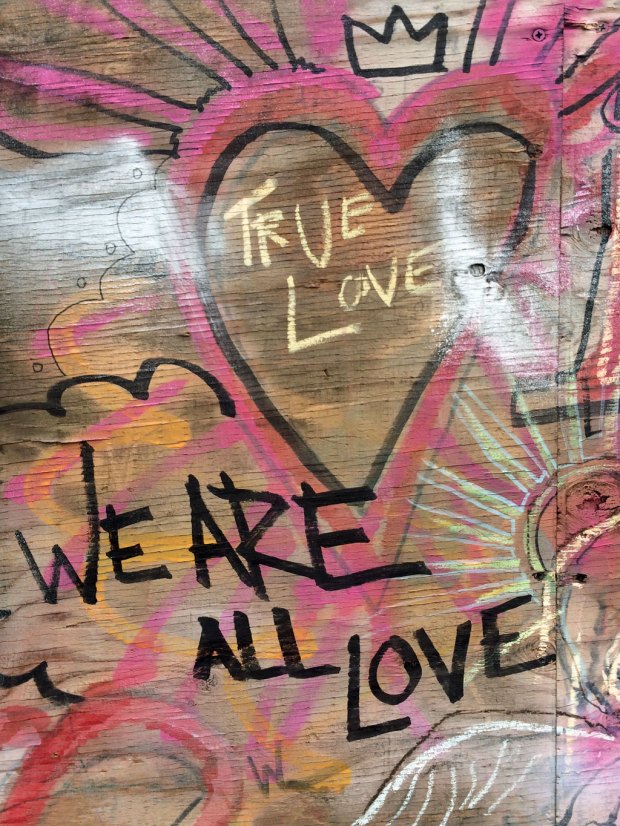 TRUE
LOVE
WE ARE
ALL LOVE
W